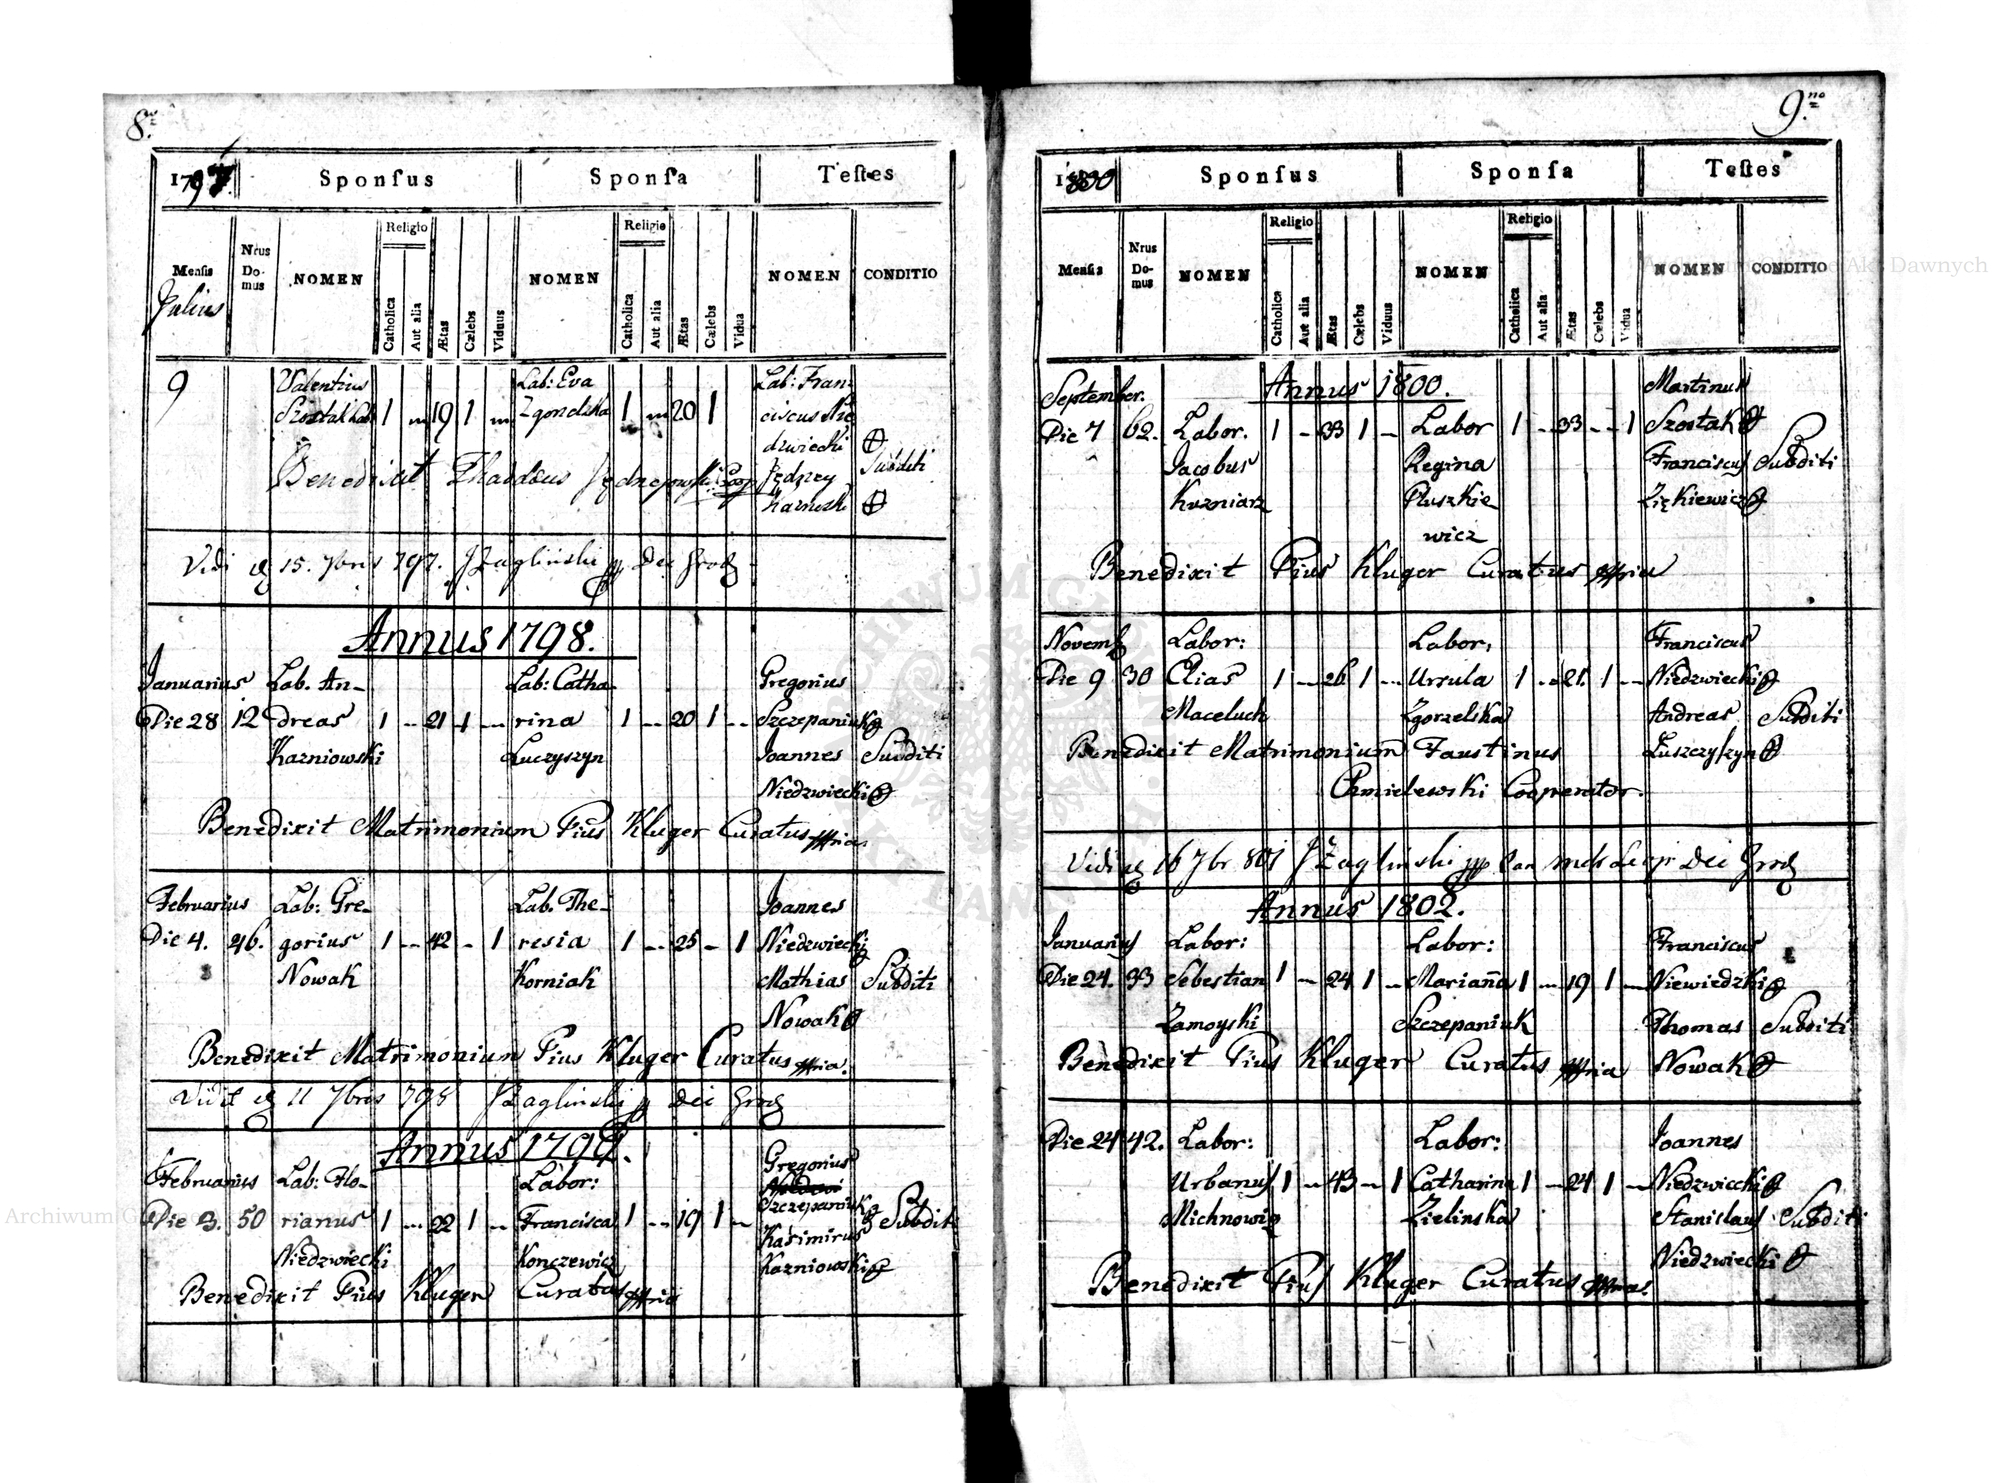 8.
1797.
Sponsus
Sponsa
Testes
Mensis
Julius
Nrus Do- mus
NOMEN
Religio
Catholica
Aut alia
Ætas
Cælebs
Viduus
NOMEN
Religio
Catholica
Aut alia
Ætas
Cælebs
Vidua
NOMEN
CONDITIO
9 Valentius Lab: Eva Lab: Fran-
Szostak 1 19 1 Zgorzelska 1 20 1 ciscus Nie
dzwiecki
Subditi
Benedixit Thaddæus Jędrzejowski Coop Jędrzey
Karnoski
Vidi 15. 7bris 797. JZagliński Dec Grod
Annus 1798.
Januarius Lab. An- Lab: Catha- Gregorius
Die 28 12 dreas 1 -- 21 1 -- rina 1 -- 20 1 -- Szczepaniuk
Kazniowski Łuczyszyn Joannes Subditi
Niedzwiecki
Benedixit Matrimonium Pius Kluger Curatus mpria
Februarius Lab: Gre- Lab. The- Joannes
Die 4. 46. gorius 1 -- 42 - 1 resia 1 -- 25 - 1 Niedzwiecki
Nowak Korniak Mathias Subditi
Nowak
Benedixit Matrimonium Pius Kluger Curatus mpria.
Vidit 11 7bris 798 JZagliński Dec Grod
Annus 1799.
Februarius Lab: Flo- Labor: Gregorius
Szczepaniuk
Die 3. 50 rianus 1 -- 22 1 -- Francisca 1 -- 19 1 -- Subditi
Kasimirus
Niedzwiecki Konczewicz Kazniowski
Benedixit Pius Kluger Curatus mpria
9.no
1800
Sponsus
Sponsa
Testes
Mensis
Nrus Do- mus
NOMEN
Religio
Catholica
Aut alia
Ætas
Cælebs
Viduus
NOMEN
Religio
Catholica
Aut alia
Ætas
Cælebs
Vidua
NOMEN
CONDITIO
September. Annus 1800. Martinus
Die 7 62. Labor. 1 - 33 1 - Labor 1 -- 33 -- 1 Szostak
Jacobus Regina Franciscus Subditi
Kuzniarz Pluszkie- Ziękiewicz
wicz
Benedixit Pius Kluger Curatus mpria
Novemb Labor: Labor: Franciscus
Die 9 30 Elias 1 -- 26 1 -- Ursula 1 -- 21. 1 -- Niedzwiecki
Maceluch Zgorzelska Andreas Subditi
Benedixit Matrimonium Faustinus Łuszczyszyn
Chmielewski Cooperator.
Vidi 16 7br 801 JZagliński Dec Grod
Annus 1802.
Januarius Labor: Labor: Franciscus
Die 24. 33 Sebestian 1 -- 24 1 -- Marianna 1 -- 19 1 -- Niewiedzki
Zamoyski Szczepaniuk Thomas Subditi
Benedixit Pius Kluger Curatus mpria Nowak
Die 24 42. Labor: Labor: Joannes
Urbanus 1 -- 43 - 1 Catharina 1 -- 24 1 -- Niedzwiecki
Michnowicz Zielinska Stanislaus Subditi
Niedzwiecki
Benedixit Pius Kluger Curatus mpria.